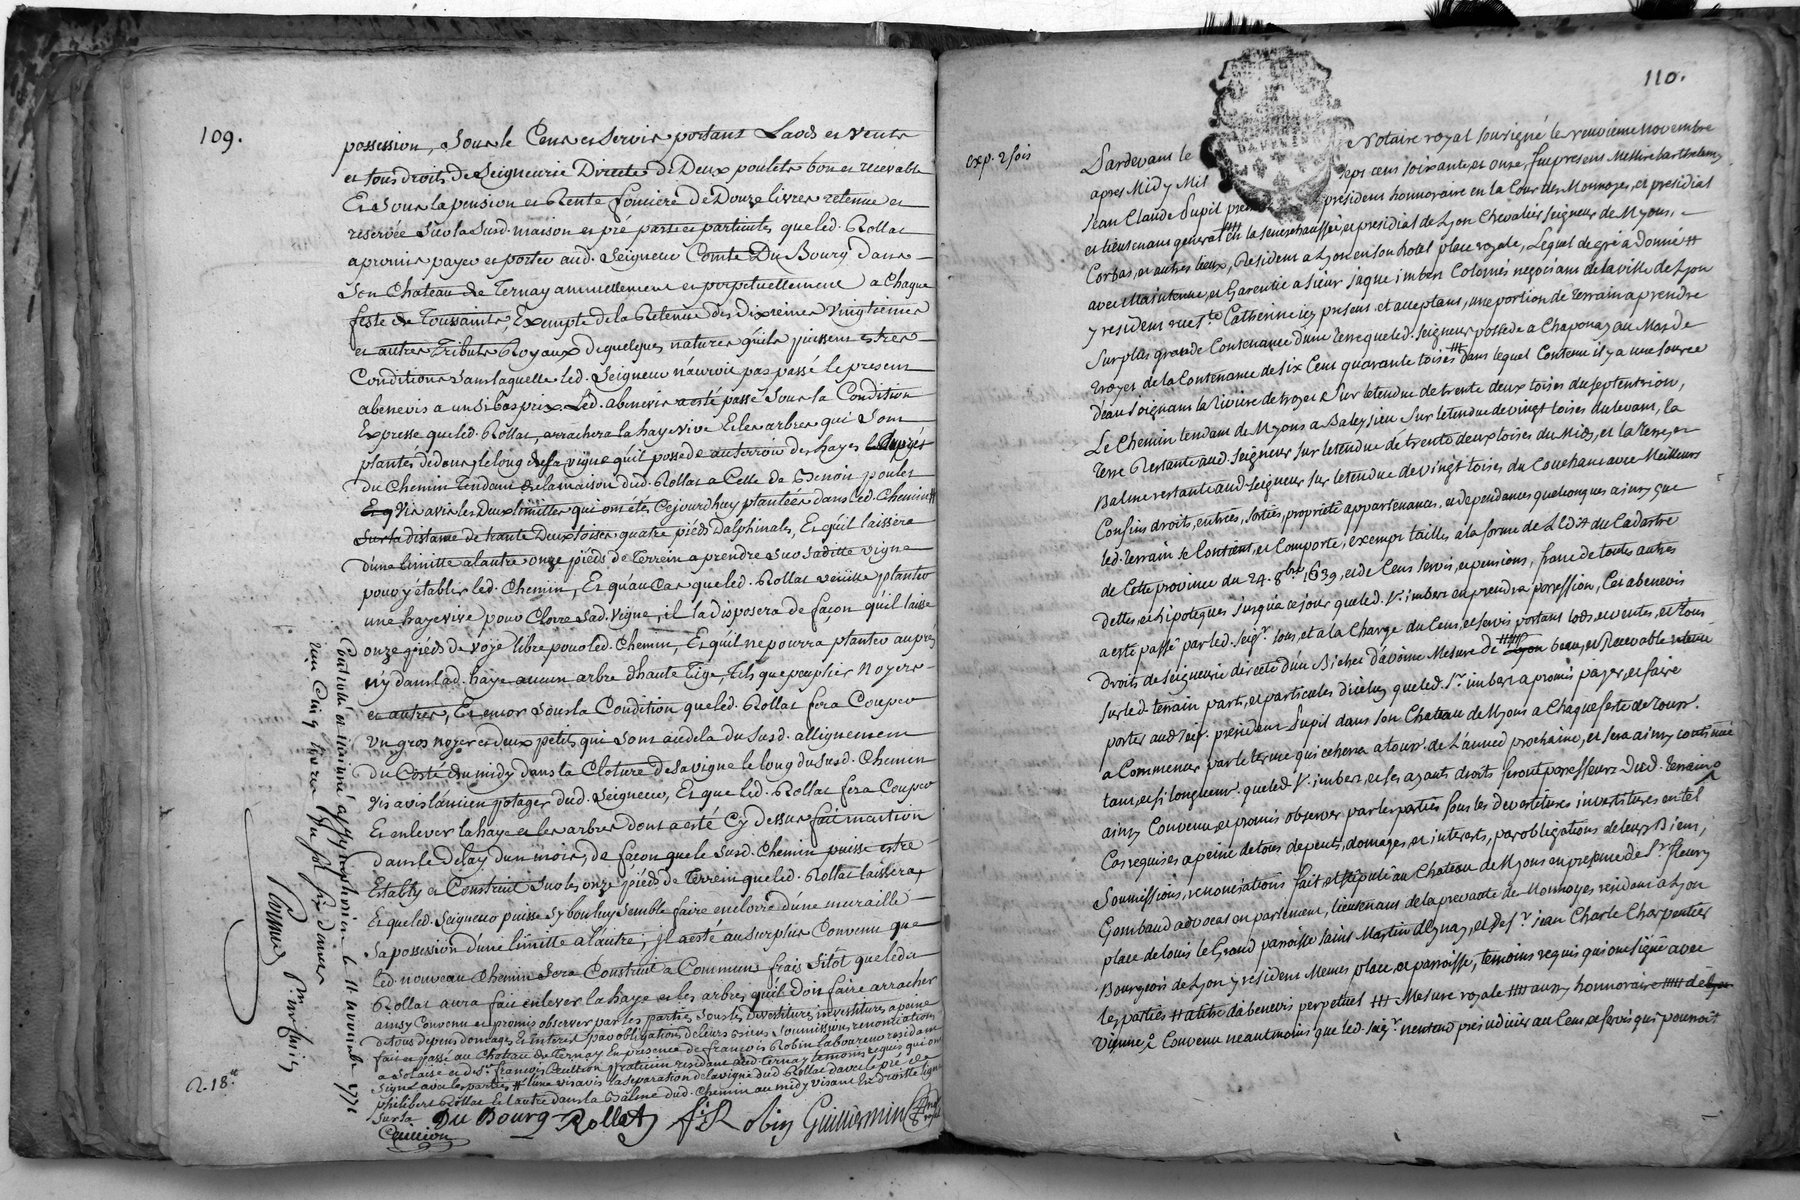 109.
possession, sous le Cens et servis portant Laods et vente
et tous droits de Seigneurie Directe de Deux poulets bon et recevable
Et sous la pension et Rente fonciere de Douze livres retenue et
reservée sur la Susd. maison et pré partie et particules que led. Rollat
a promis payer et porter aud. Seigneur Comte Du Bourg dans
Son Chateau de Ternay annuellement et perpetuellement a Chaque
feste de Toussaints, Exempte de la Retenue des Dixiemes vingtiemes
et autres Tributs Royaux de quelques natures quils puissent estre
Conditions sans laquelle led. Seigneur n'auroit pas passé le present
abenevis a un Si bas prix Led. abenevis a esté passé sous la Condition
Expresse que led. Rollat, arrachera la haye vive Et les arbres qui sont
plantés dedans le long de sa vigne qu'il possede au terroir des hayes
du Chemin Tendant de la maison dud. Rollat a Celle de Benoit poulet
vis avis les Deux limittes qui ont étés Cejourdhuy plantées dans led. Chemin #
Sur la distance de trante Deux toises quatre pieds Dalphinales, Et qu'il laissera
d'une limitte a l'autre onze pieds de Terrein a prendre sur saditte vigne
pour y établir led. Chemin, Et qu'au Cas que led. Rollat veüille planter
une haye vive pour Clorre Sad. vigne, il la disposera de façon qu'il laisse
onze pieds de voye libre pour led. Chemin, Et qu'il ne pourra planter auprès
n'y dans lad. haye aucun arbre d'haute Tige, Tels que peuplier Noyers
et autres, Et encor sous la Condition que led. Rollat fera Couper
un gros noyer et deux petits qui sont audela du Susd. allignement
du Costé du midy dans la Cloture de sa vigne le long du susd. Chemin
vis avis l'ancien potager dud. Seigneur, Et que led. Rollat fera Couper
Et enlever la haye et les arbres dont a esté Cy dessus fait mantion
dans le Delay d'un mois, de façon que le susd. Chemin puisse estre
Etably et Construit sur les onze pieds de Terrein que led. Rollat laissera
Et que led. Seigneur puisse sy bon luy semble faire enclorre d'une muraille
Sa possession d'une limitte a l'autre; il a esté au surplus Convenu que
led. nouveau Chemin Sera Construit a Communs frais Sitot que led.
Rollat aura fait enlever la haye et les arbres qu'il doit faire arracher
ainsy Convenu et promis observer par les parties sous les Devestitures investitures a peine
de tous depens domages et interest par obligations de leurs biens soumissions renontiations
fait et passé au Chateau de Ternay en presence de françois Robin laboureur residant
a Solaise et de Sr. françois Cuilleron praticien residant aud. Ternay temoins requis qui ont
Signé avec les parties # l'une vis avis la separation de la vigne dud. Rollat d'avec le pré de
philibert Rollat Et l'autre dans la Balme dud. Chemin au midy visant En droitte ligne
sur la
Du Bourg Rollet f. Robin Guilliermin
R. 18 s
110.
exp. 2 fois
Pardevant le Notaire royal soussigné le neuvieme novembre
apres Midy Mil sept cent soixante et onze fut present Messire barthelemy
Jean Claude Pupil president honnoraire en la Cour des Monnoyes, et presidial
et lieutenant general en la senechaussée, et presidial de Lyon Chevalier seigneur de Myons,
Corbas, et autres lieux, Resident a Lyon en son hotel place royale, Lequel de gré a donné #
avec Maintenue, et Garentie a sieur jaque imbert Colomés negociant de la ville de Lyon
y resident rue Ste. Catherine icy present, et acceptant, une portion de terrain a prendre
sur plus grande Contenance d'une terre que led. seigneur possede a Chaponay au Mas de
troyes de la Contenance de six Cent quarante toises dans lequel Contenu il y a une source
d'eau joignant la riviere de troyes sur letendue de trente deux toises du septentrion,
Le Chemin tendant de Myons a Valeysieu sur letendue de vingt toises du levant, la
terre Restante aud. seigneur sur letendue de trente deux toises du Midy, et la terre, et
Balme restante aud. seigneur sur letendue de vingt toises du Couchant avec Meilleurs
Confins droits, entrées, sorties, proprieté appartenances, et dependances quelconques ainsy que
led. terrain se Contient, et Comporte, exempt tailles a la forme de L'Edit du Cadastre
de Cette province du 24. 8bre. 1639, et de Cens servis, et pensions, franc de toutes autres
dettes, et hipoteques jusqua ce jour que led. Sr. imbert en prendra possession, Cet abenevis
a esté passé par led. seigr. sous, et a la Charge du Cens, et servis portant lods, et ventes, et tous
droits de seigneurie directe d'un Bichet d'avoine Mesure de Lyon beau, et Recevable
sur led. terrain parti, et particules d'icelluy que led. Sr. imbert a promis payer, et faire
porter aud. seigr. president Pupil dans son Chateau de Myons a Chaque feste de touss.
a Commencer par le terme qui echerra a touss. de L'année prochaine, et sera ainsy continué
tant, et si longtems que led. Sr. imbert, et les ayants droits seront possesseurs dud. terrain
ainsy Convenu, et promis observer par les parties sous les devestitures investitures en tel
Cas requises a peine de tous depents, domages, et interets, par obligations de leurs Biens,
soumissions, renonciations fait et stipulé au Chateau de Myons en presence de Sr. fleury
Gombaud advocat en parlement, lieutenant de la prevoté des Monnoyes resident a Lyon
place de louis le Grand paroisse saint Martin d'Ainay, et de Sr. jean Charle Charpentier
Bourgeois de Lyon y resident Memes place, et parroisse, temoins requis qui ont signé avec
les parties # a titre d'abenevis perpetuel ### Mesure royale #### aussy honnoraire ##### de Lyon
Vienne, Convenu neantmoins que led. seigr. n'entend prejudicier au Cens et servis qui pourroit